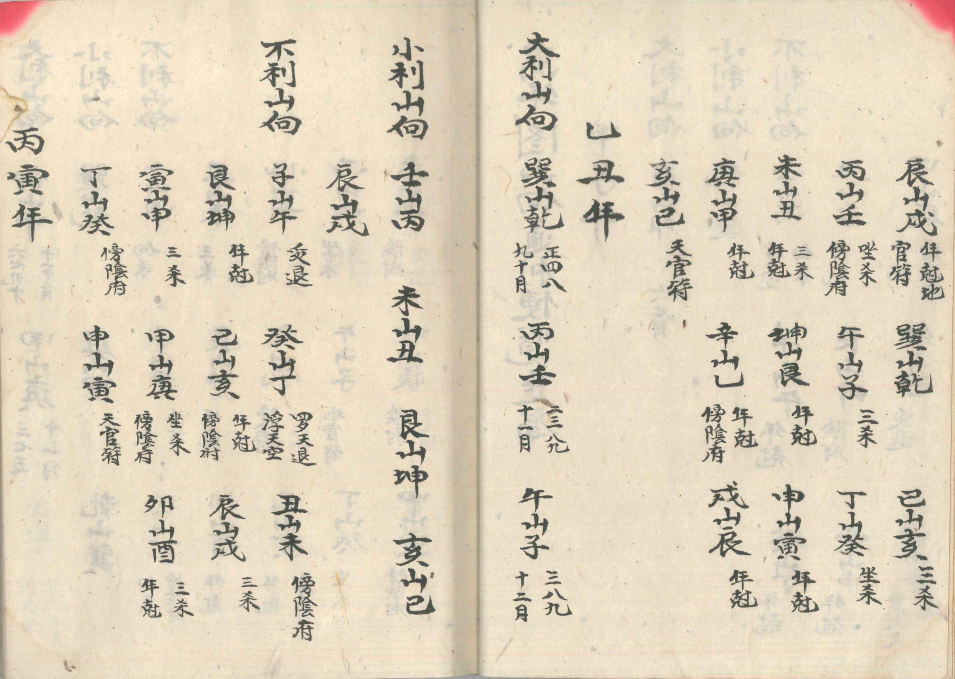 辰山戍 年尅地官符 巽山乾 巳山亥 三杀
丙山壬 坐杀傍陰府 午山子 三杀 丁山癸 坐杀
未山丑 三杀年尅 坤山艮 年尅 申山寅 年尅
庚山甲 年尅 辛山乙 年尅傍陰府 戍山辰 年尅
亥山巳 天官符
乙丑年
大利山向 巽山乾 正四八九十月 丙山壬 二三八九十一月 午山子 三八九十二月
小利山向 壬山丙 未山丑 艮山坤 亥山巳
辰山戍
不利山向 子山午 灸退 癸山丁 罗天退浮天空 丑山未 傍陰府
艮山坤 年尅 巳山亥 年尅傍陰府 辰山戍 三杀
寅山申 三杀 甲山庚 坐杀傍陰府 卯山酉 三杀年尅
丁山癸 傍陰府 申山寅 天官符
丙寅年